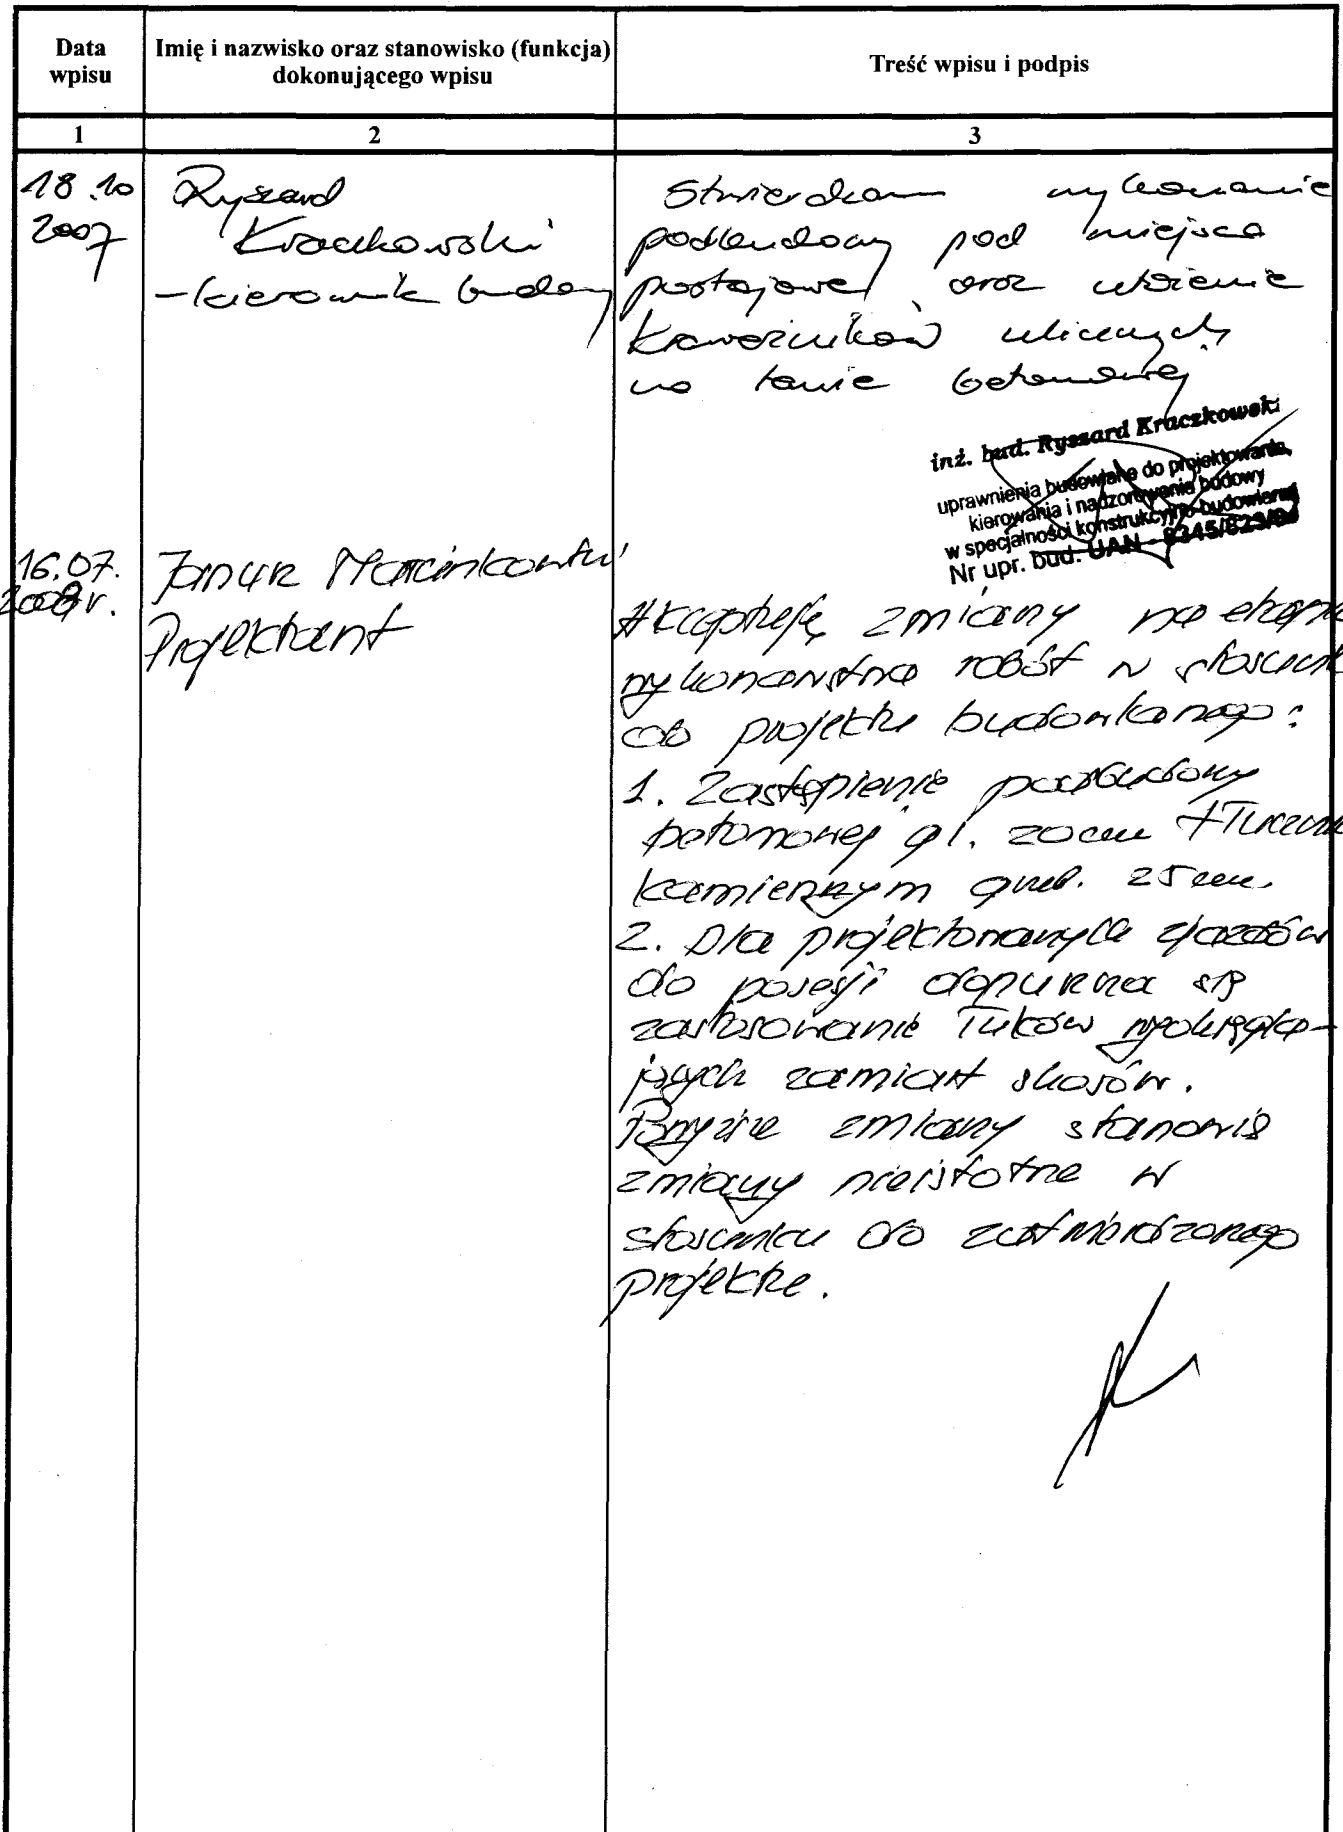 Data
wpisu
Imię i nazwisko oraz stanowisko (funkcja)
dokonującego wpisu
Treść wpisu i podpis
1
2
3
18.10
2007
Ryszard
Kraczkowski
- kierownik budowy
Stwierdzam wykonanie
podbudowy pod miejsca
postojowe, oraz ułożenie
krawężników ulicznych
na ławie betonowej
inż. bud. Ryszard Kraczkowski
uprawnienia budowlane do projektowania,
kierowania i nadzorowania budowy
w specjalności konstrukcyjno-budowlanej
Nr upr. bud. UAN - 8345/823/94
16.07.
2008r.
Janusz Marcinkowski
Projektant
Akceptuję zmiany na etapie
wykonawstwa robót w stosunku
do projektu budowlanego:
1. Zastąpienie podbudowy
betonowej gł. 20cm tłuczniem
kamiennym grub. 25cm.
2. Dla projektowanych zjazdów
do posesji dopuszcza się
zastosowanie łuków wyokrągla-
jących zamiast skosów.
Powyższe zmiany stanowią
zmiany nieistotne w
stosunku do zatwierdzonego
projektu.